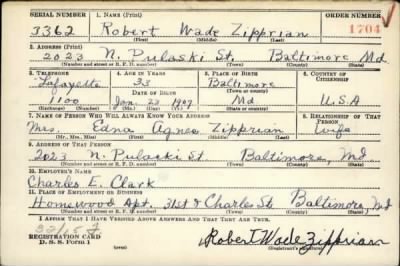 SERIAL NUMBER 1. NAME (Print) ORDER NUMBER
3362 Robert Wade Zipprian 1704
(First) (Middle) (Last)
2. ADDRESS (Print)
2023 N. Pulaski St. Baltimore Md
(Number and street or R. F. D. number) (Town) (County) (State)
3. TELEPHONE 4. AGE IN YEARS 5. PLACE OF BIRTH 6. COUNTRY OF CITIZENSHIP
Lafayette 33 Baltimore
DATE OF BIRTH (Town or county)
1100 Jan. 23 1907 Md U.S.A
(Exchange) (Number) (Mo.) (Day) (Yr.) (State or country)
7. NAME OF PERSON WHO WILL ALWAYS KNOW YOUR ADDRESS 8. RELATIONSHIP OF THAT PERSON
Mrs. Edna Agnes Zipprian Wife
(Mr., Mrs., Miss) (First) (Middle) (Last)
9. ADDRESS OF THAT PERSON
2023 N. Pulaski St. Baltimore, Md
(Number and street or R. F. D. number) (Town) (County) (State)
10. EMPLOYER'S NAME
Charles E. Clark
11. PLACE OF EMPLOYMENT OR BUSINESS
Homewood Apt. 31st & Charles St. Baltimore, Md
(Number and street or R. F. D. number) (Town) (County) (State)
I AFFIRM THAT I HAVE VERIFIED ABOVE ANSWERS AND THAT THEY ARE TRUE.
REGISTRATION CARD
D. S. S. Form 1 Robert Wade Zipprian
(Registrant's signature)